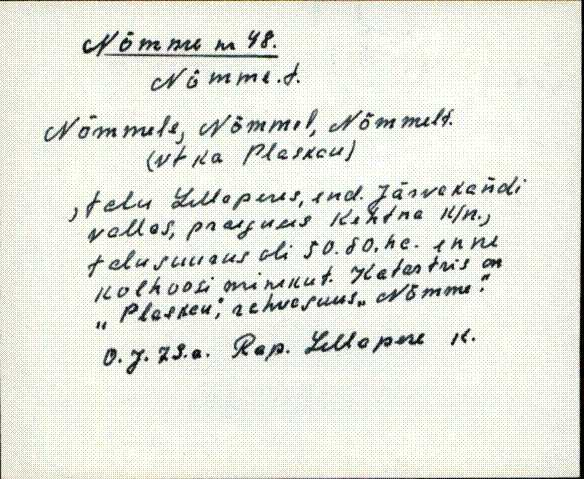 Nõmme nr 48.
Nõmme.t.
Nõmmele, Nõmmel, Nõmmelt.
(vt ka Plaskeu)
, talu Lellaperes, end. Järvakandi
vallas, praeguses Kehtna k/n.,
talu suurus oli 50.60.ha. enne
kolhoosi minekut. Katastris on
„Plaskeu", rahvasuus „Nõmme".
O.J.73.a. Rap. Lellapere k.